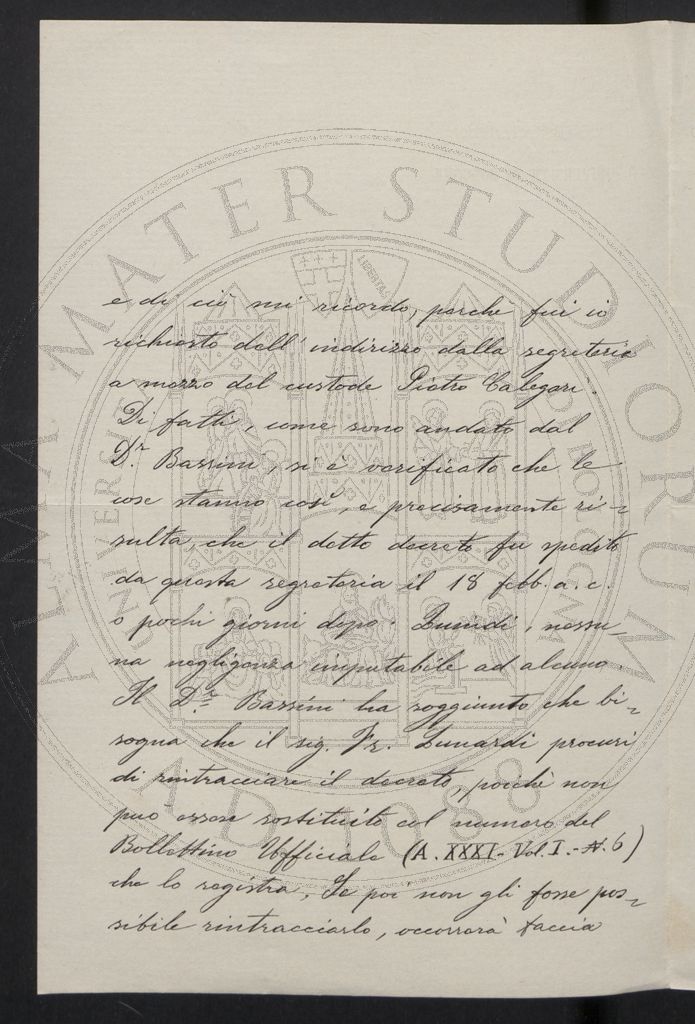 e di ciò mi ricordo, perchè fui io
richiesto dell' indirizzo dalla segreteria
a mezzo del custode Pietro Calegari.
Di fatti, come sono andato dal
D.r Bassini, si è verificato che le
cose stanno così, e precisamente ri-
sulta, che il detto decreto fu spedito
da questa segreteria il 18 febb. a. c.
o pochi giorni dopo. Quindi, nessu-
na negligenza imputabile ad alcuno.
Il D.r Bassini ha soggiunto che bi-
sogna che il sig. Fr. Lunardi procuri
di rintracciare il decreto, poichè non
può essere sostituito col numero del
Bollettino Ufficiale (A. XXXI - Vol. I. - N. 6)
che lo registra. Se poi non gli fosse pos-
sibile rintracciarlo, occorrerà faccia
ALMA MATER STUDIORUM
A.D. 1088
LIBERTAS